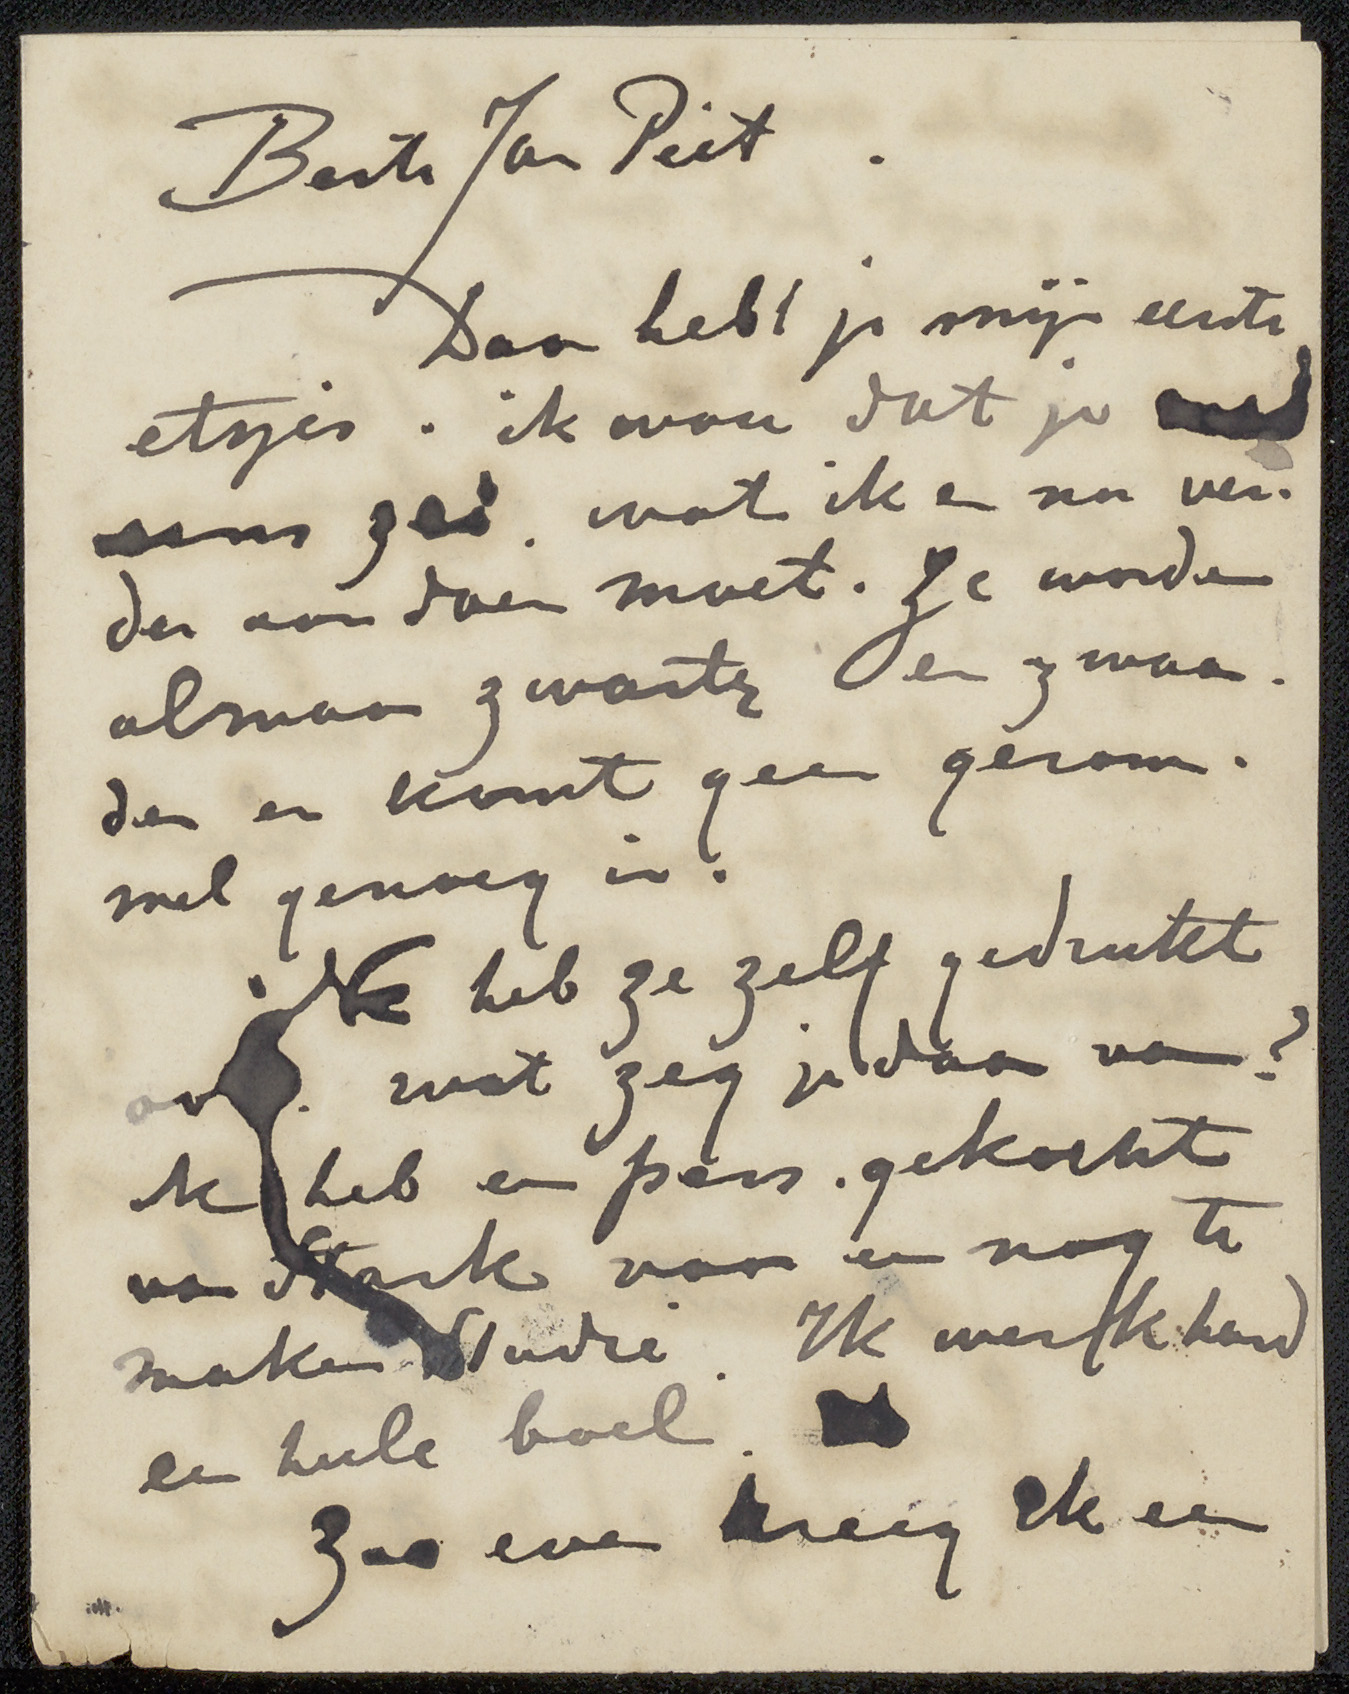 Beste Jan Piet
Daar hebt je mijn eerste
etsjes. ik wou dat je
eens zei. wat ik er nu ver-
der aan doen moet. Ze worden
almaar zwarter en zwaar-
der er komt geen gerom-
mel genoeg in.
ik heb ze zelf gedrukt
ook. wat zeg je daar van?
ik heb een pers. gekocht
van Stark voor een nog te
maken studie. Ik werk hard
een heele boel.
Zoo even kreeg ik een